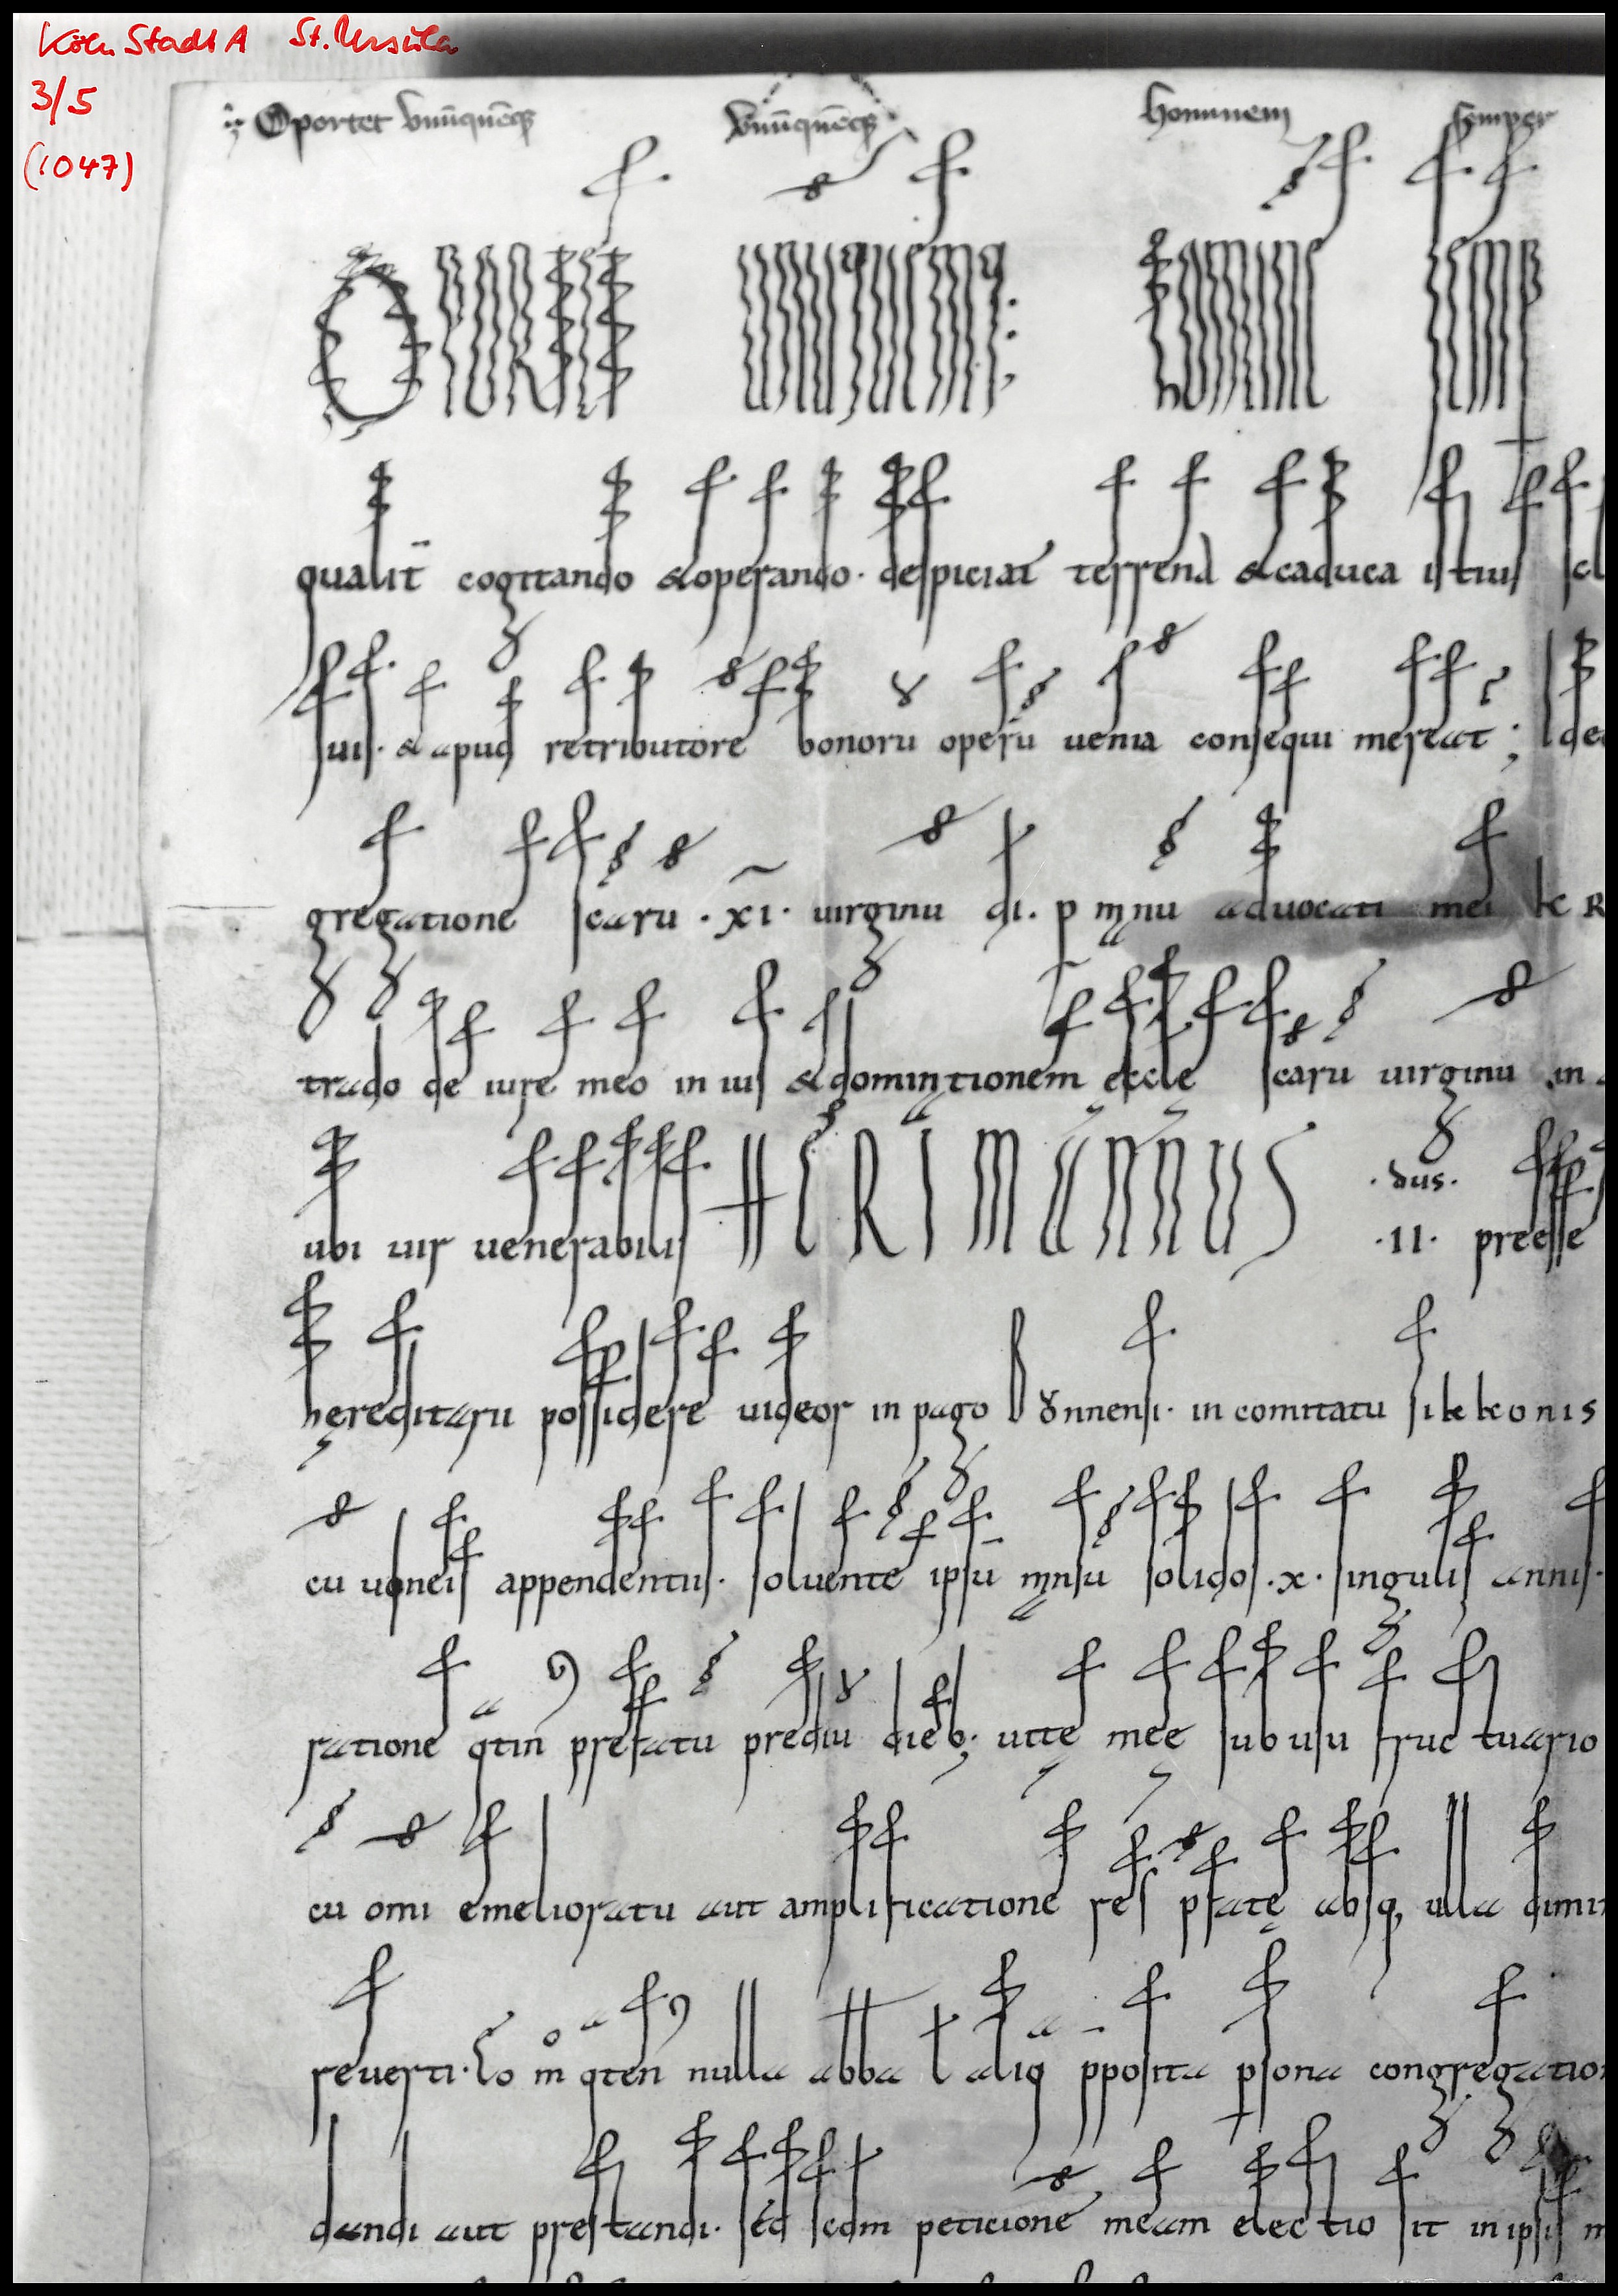 Köln StadtA St. Ursula
3/5
(1047)
Oportet vnūquēqȝ vnūquēqȝ hominem semper
OPORTET UNUQUEMQ: HOMINE SEMP
qualit̄ cogitando & operando. despiciat terrena & caduca istius scl
suis. & apud retributore bonoru operū uenia consequi mereat̄; Ideo
gregatione scaru .xī. uirginu di. p mạnu aduocati mei
trado de iure meo in ius & dominationem eccle scaru uirginu in
ubi uir uenerabilis HERIMANNUS .dus. .II. preesse
hereditaru possidere uideor in pago Bonnensi. in comitatu sikkonis
cu uineis appendentus. soluente ipsū mansū solidos .x. singulis annis.
ratione qtin prefatu prediu dieb; uite mee sub usu fructuario
cu omi emelioratu aut amplificatione rei pfate absq, ulla dimi
reuerti. Eo m° qten nulla abba l aliq pposita psona congregatio
dandi aut prestandi. sed scdm peticione meam electio sit in ipsis